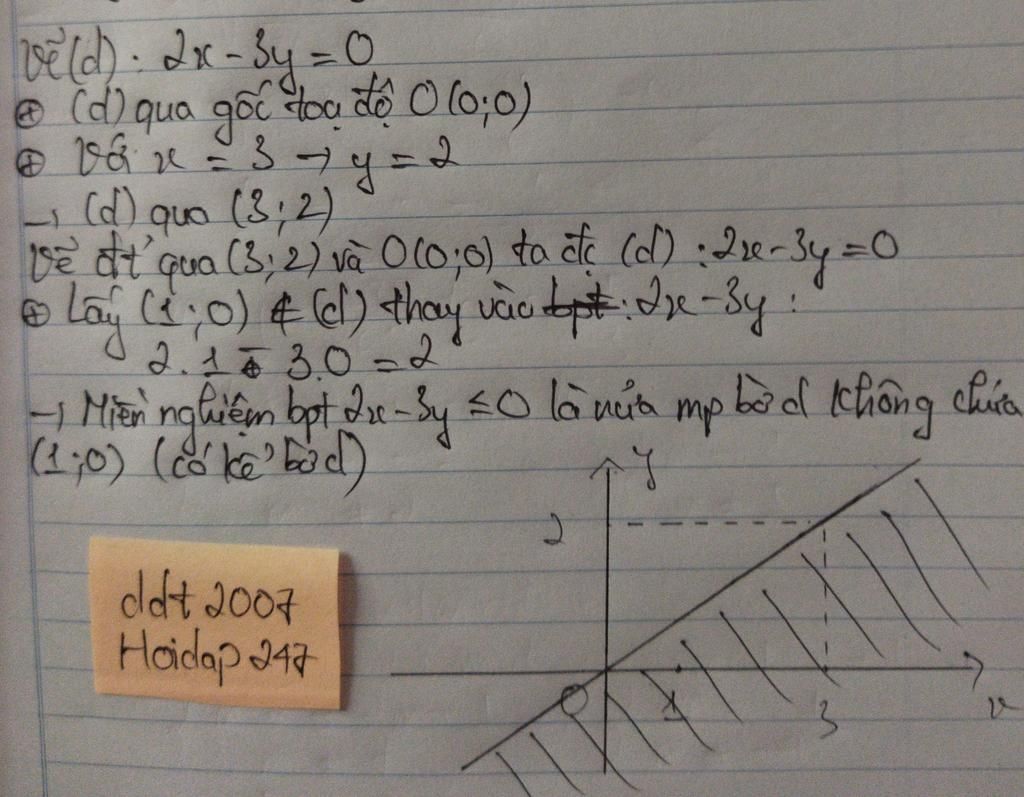 Vẽ (d): 2x - 3y = 0
⊕ (d) qua gốc toạ độ O(0;0)
⊕ Với x = 3 → y = 2
→ (d) qua (3;2)
Vẽ đt qua (3;2) và O(0;0) ta đc (d): 2x - 3y = 0
⊕ Lấy (1;0) ∉ (d) thay vào bpt: 2x - 3y:
2.1 - 3.0 = 2
→ Miền nghiệm bpt 2x - 3y ≤ 0 là nửa mp bờ d không chứa
(1;0) (có kể bờ d)
y
2
O 1 3 x
ddt 2007
Hoidap 247